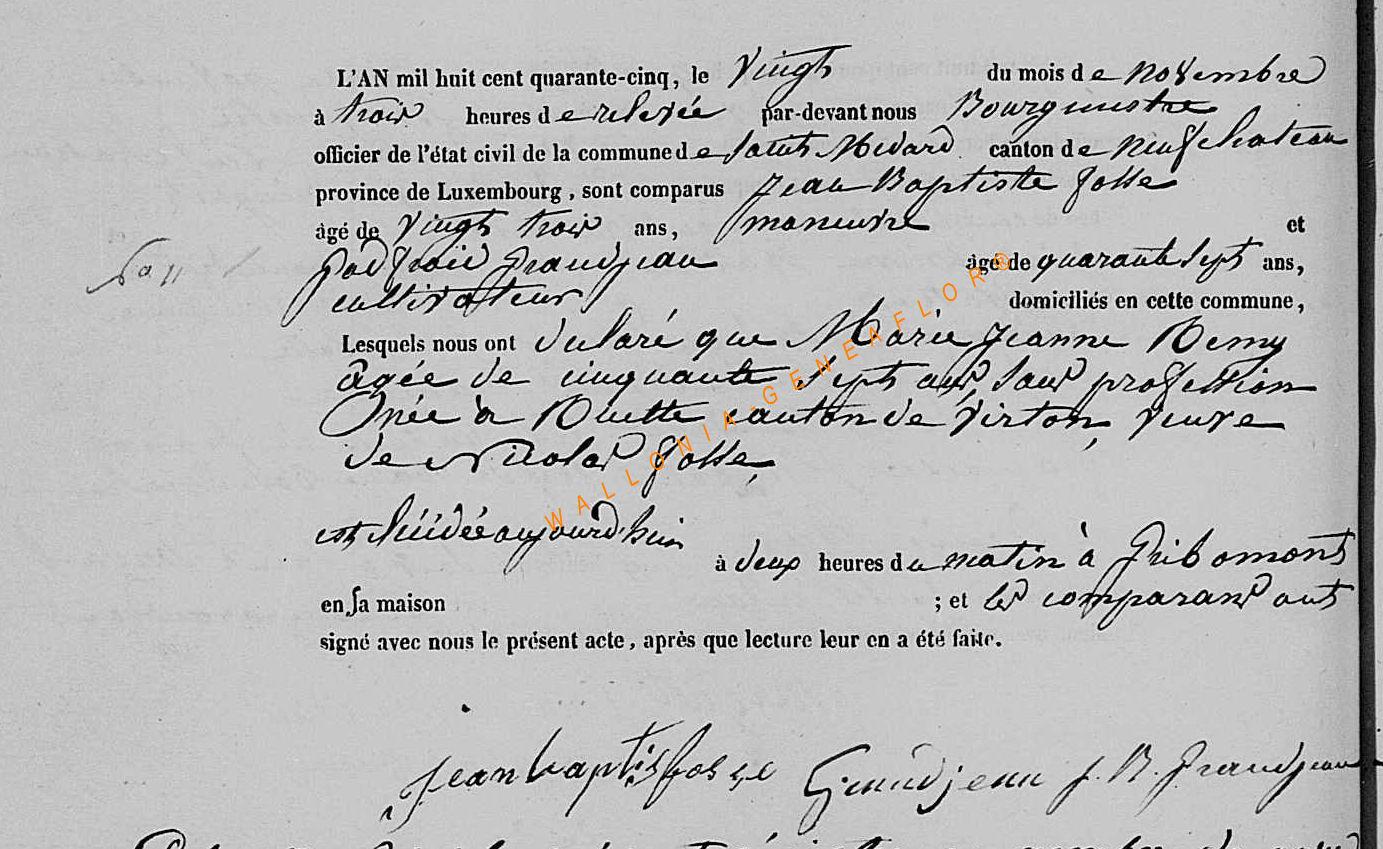 L'AN mil huit cent quarante-cinq, le vingt du mois de novembre
à trois heures de relevée par-devant nous Bourgmestre
officier de l'état civil de la commune de Saint Médard canton de Neufchateau
province de Luxembourg, sont comparus Jean Baptiste Fosse
âgé de vingt trois ans, manœuvre et
Godfroid Grandjean âgé de quarante sept ans,
No 11
cultivateur domiciliés en cette commune,
Lesquels nous ont déclaré que Marie Jeanne Remy
âgée de cinquante sept ans, sans profession
née à Ruette canton de Virton, veuve
de Nicolas Fosse,
est décédée aujourd'hui
à deux heures du matin à Gribomont
en sa maison ; et les comparans ont
signé avec nous le présent acte, après que lecture leur en a été faite.
jean baptis fosse Grandjean J. B. Grandjean
WALLONIA-GENEAFLOR®